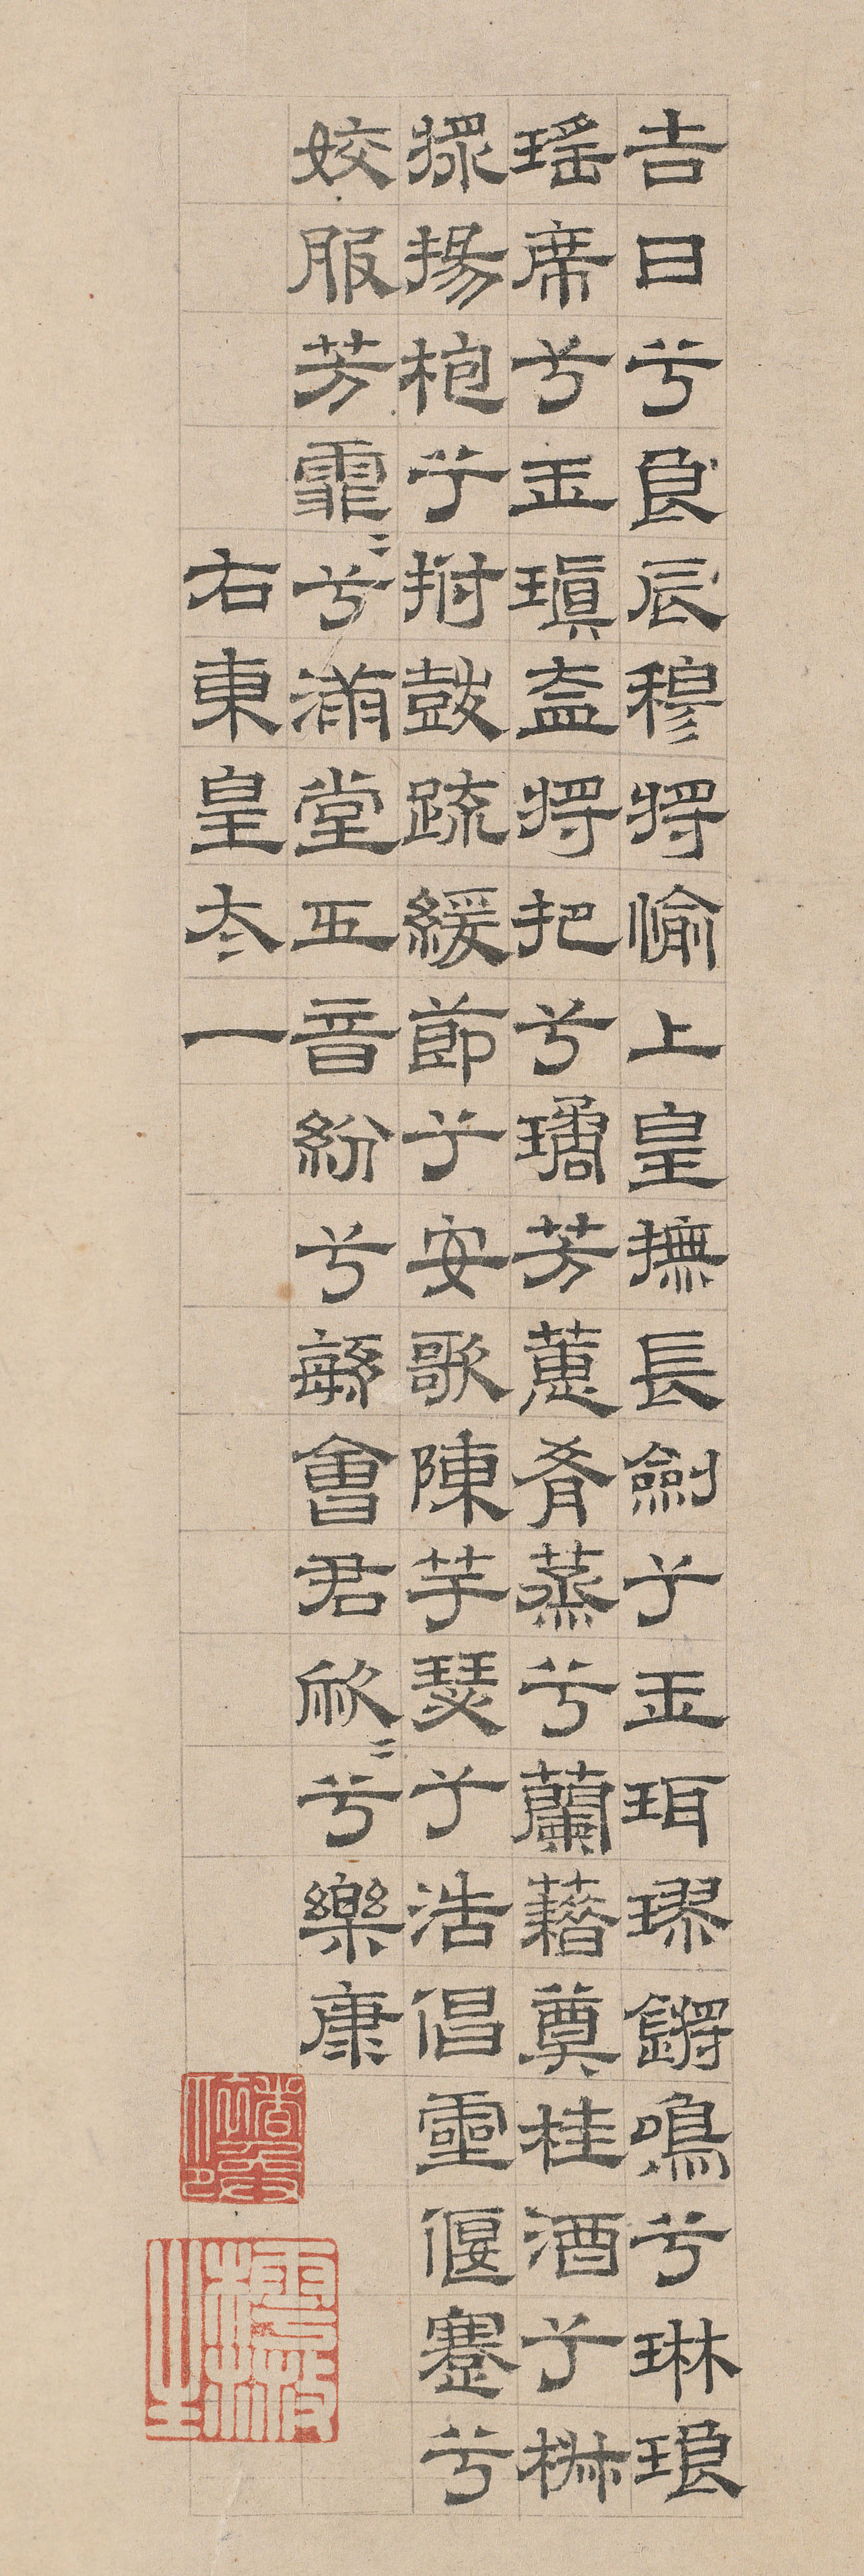 吉日兮良辰穆將愉上皇撫長劍兮玉珥璆鏘鳴兮琳琅
瑤席兮玉瑱盍將把兮璚芳蕙肴蒸兮蘭藉奠桂酒兮椒
漿揚枹兮拊鼓疏緩節兮安歌陳竽瑟兮浩倡靈偃蹇兮
姣服芳霏〻兮滿堂五音紛兮繁會君欣〻兮樂康
右東皇太一